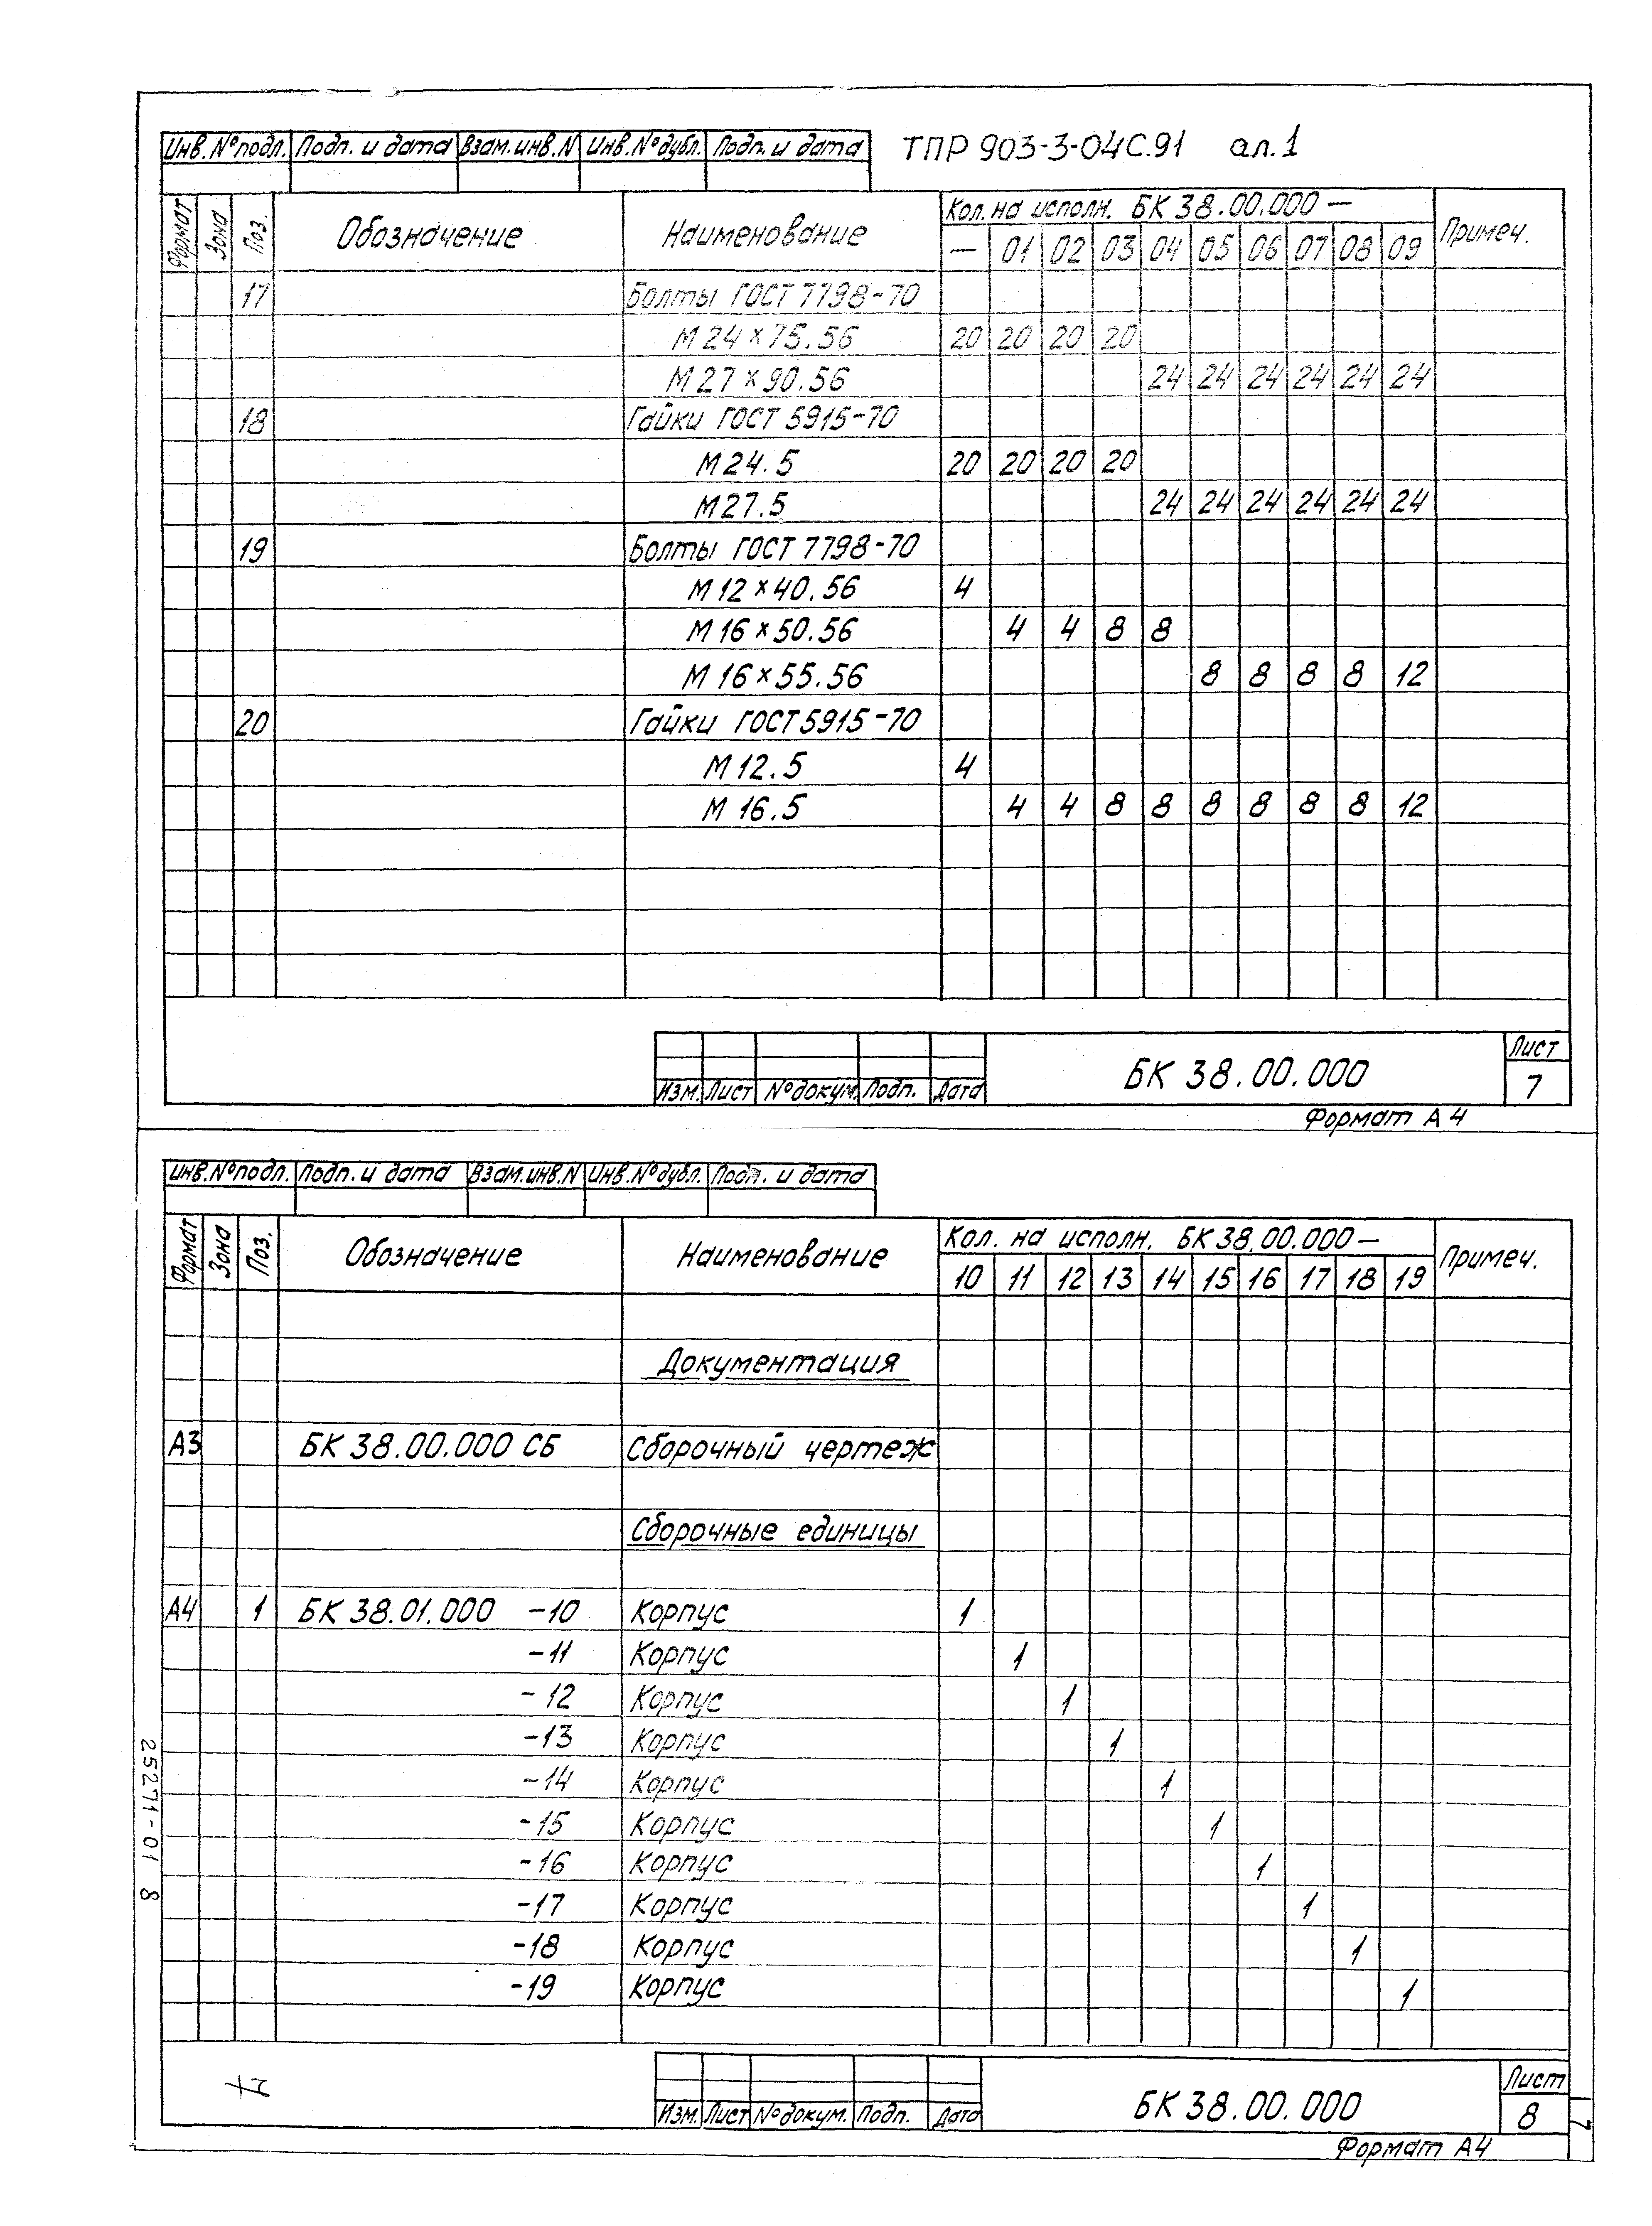 Инв.№подл. Подп. и дата Взам.инв.N Инв.№дубл. Подп. и дата ТПР 903-3-04С.91 ал.1
Формат Зона Поз. Обозначение Наименование Кол. на исполн. БК 38.00.000 — Примеч.
— 01 02 03 04 05 06 07 08 09
17 Болты ГОСТ 7798-70
М 24 × 75.56 20 20 20 20
М 27 × 90.56 24 24 24 24 24 24
18 Гайки ГОСТ 5915-70
М 24.5 20 20 20 20
М27.5 24 24 24 24 24 24
19 Болты ГОСТ 7798-70
М 12 × 40.56 4
М 16 × 50.56 4 4 8 8
М 16 × 55.56 8 8 8 8 12
20 Гайки ГОСТ 5915-70
М 12.5 4
М 16.5 4 4 8 8 8 8 8 8 12
БК 38.00.000 Лист
Изм. Лист №докум. Подп. Дата 7
Формат А4
Инв.№подл. Подп. и дата Взам.инв.N Инв.№дубл. Подп. и дата
Формат Зона Поз. Обозначение Наименование Кол. на исполн. БК 38.00.000 — Примеч.
10 11 12 13 14 15 16 17 18 19
Документация
А3 БК 38.00.000 СБ Сборочный чертеж
Сборочные единицы
А4 1 БК 38.01.000 -10 Корпус 1
-11 Корпус 1
-12 Корпус 1
-13 Корпус 1
-14 Корпус 1
-15 Корпус 1
-16 Корпус 1
-17 Корпус 1
-18 Корпус 1
-19 Корпус 1
25271-01 8
БК 38.00.000 Лист
Изм. Лист №докум. Подп. Дата 8
7
Формат А4